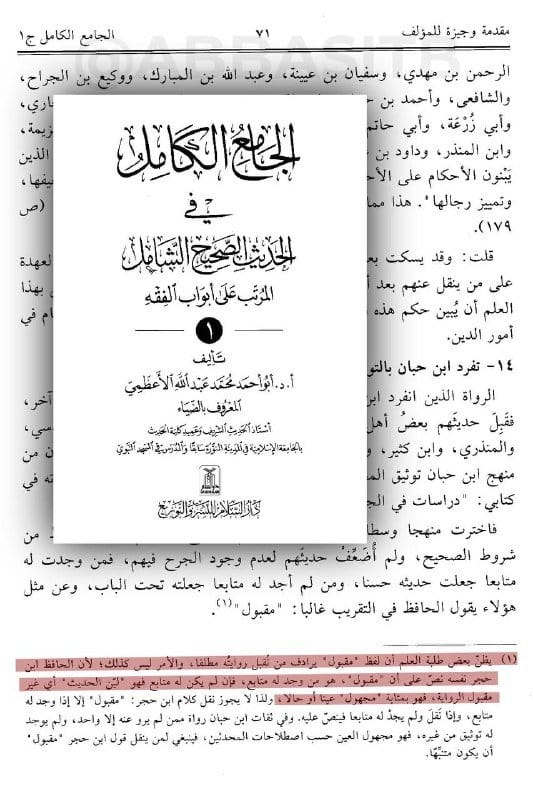 مقدمة وجيزة للمؤلف
٧١
الجامع الكامل ج١
@ABBASiTR
الرحمن بن مهدي، وسفيان بن عيينة، وعبد الله بن المبارك، ووكيع بن الجراح،
والشافعي، وأحمد بن
وأبي زُرْعَة، وأبي حاتم
وابن المنذر، وداود بن
الذين
يَبْنون الأحكام على
وتمييز رجالها". هذا
(ص
١٧٩).
قلت: وقد يسكت
العهدة
على من ينقل عنهم بعد
بهذا
العلم أن يُبين حكم هذه
في
أمور الدين.
١٤- تفرد ابن حبان
الرواة الذين انفرد
آخر،
فقَبِلَ حديثَهم بعضُ
والمنذري، وابن كثير،
من
منهج ابن حبان توثيق
في
كتابي: "دراسات في
فاخترت منهجا
من
شروط الصحيح، ولم أُضَعِّفْ حديثَهم لعدم وجود الجرح فيهم، فمن وجدت له
متابعا جعلت حديثه حسنا، ومن لم أجد له متابعا جعلته تحت الباب، وعن مثل
هؤلاء يقول الحافظ في التقريب غالبا: "مقبول"(١).
الجامع الكامل
في
الحديث الصحيح الشامل
المرتب على أبواب الفقه
١
تأليف
أ. د. أبو أحمد محمد عبد الله الأعظمي
المعروف بالضياء
أستاذ الحديث الشريف وعميد كلية الحديث
بالجامعة الإسلامية في المدينة المنورة سابقا والمدرس في المسجد النبوي
دار السلام للنشر والتوزيع
(١) يظنّ بعض طلبة العلم أن لفظ "مقبول" يرادف من تُقبل روايتُه مطلقا، والأمر ليس كذلك؛ لأن الحافظ ابن
حجر نفسه نصّ على أن "مقبول"، هو من وجد له متابع، فإن لم يكن له متابع فهو "ليّن الحديث" أي غير
مقبول الرواية، فهو بمثابة "مجهول" عينا أو حالا، ولذا لا يجوز نقل كلام ابن حجر: "مقبول" إلا إذا وجد له
متابع، وإذا نَقل ولم يجدْ له متابعا فينصّ عليه. وفي ثقات ابن حبان رواة ممن لم يرو عنه إلا واحد، ولم يوجد
له توثيق من غيره، فهو مجهول العين حسب اصطلاحات المحدثين، فينبغي لمن ينقل قول ابن حجر "مقبول"
أن يكون متنبّها.